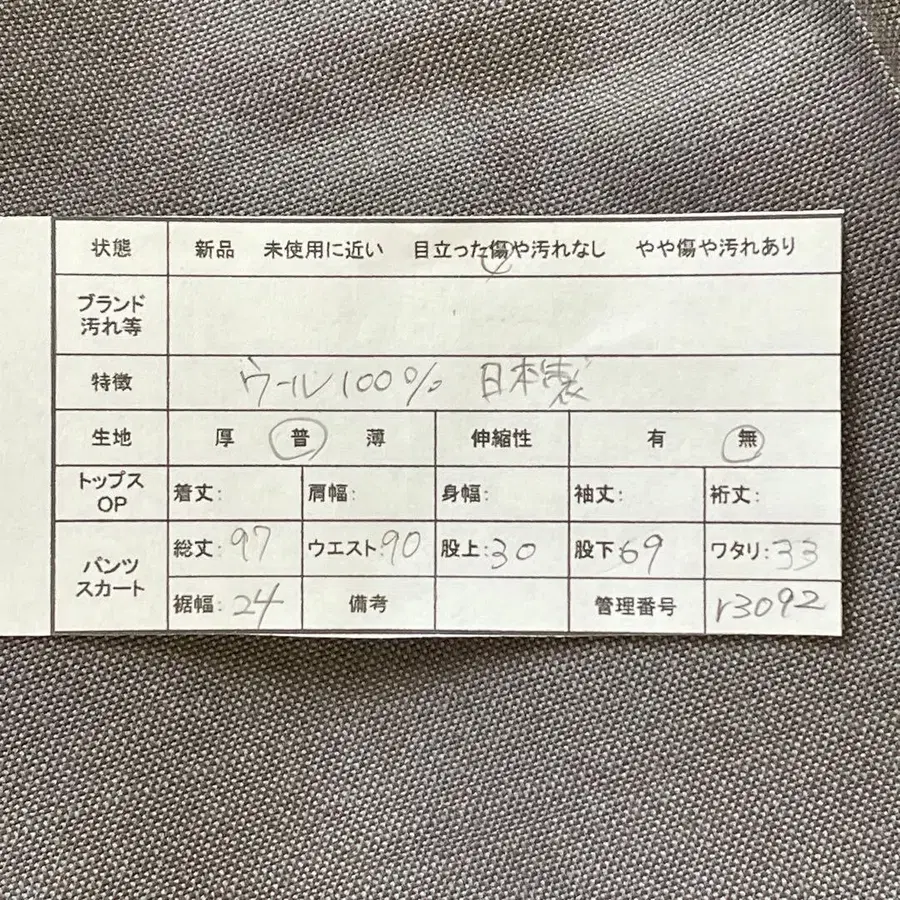 状態 新品 未使用に近い 目立った傷や汚れなし やや傷や汚れあり
ブランド
汚れ等
特徴 ウール100% 日本製
生地 厚 普 薄 伸縮性 有 無
トップス
OP
着丈: 肩幅: 身幅: 袖丈: 裄丈:
パンツ
スカート
総丈:97 ウエスト:90 股上:30 股下:69 ワタリ:33
裾幅:24 備考 管理番号 r3092